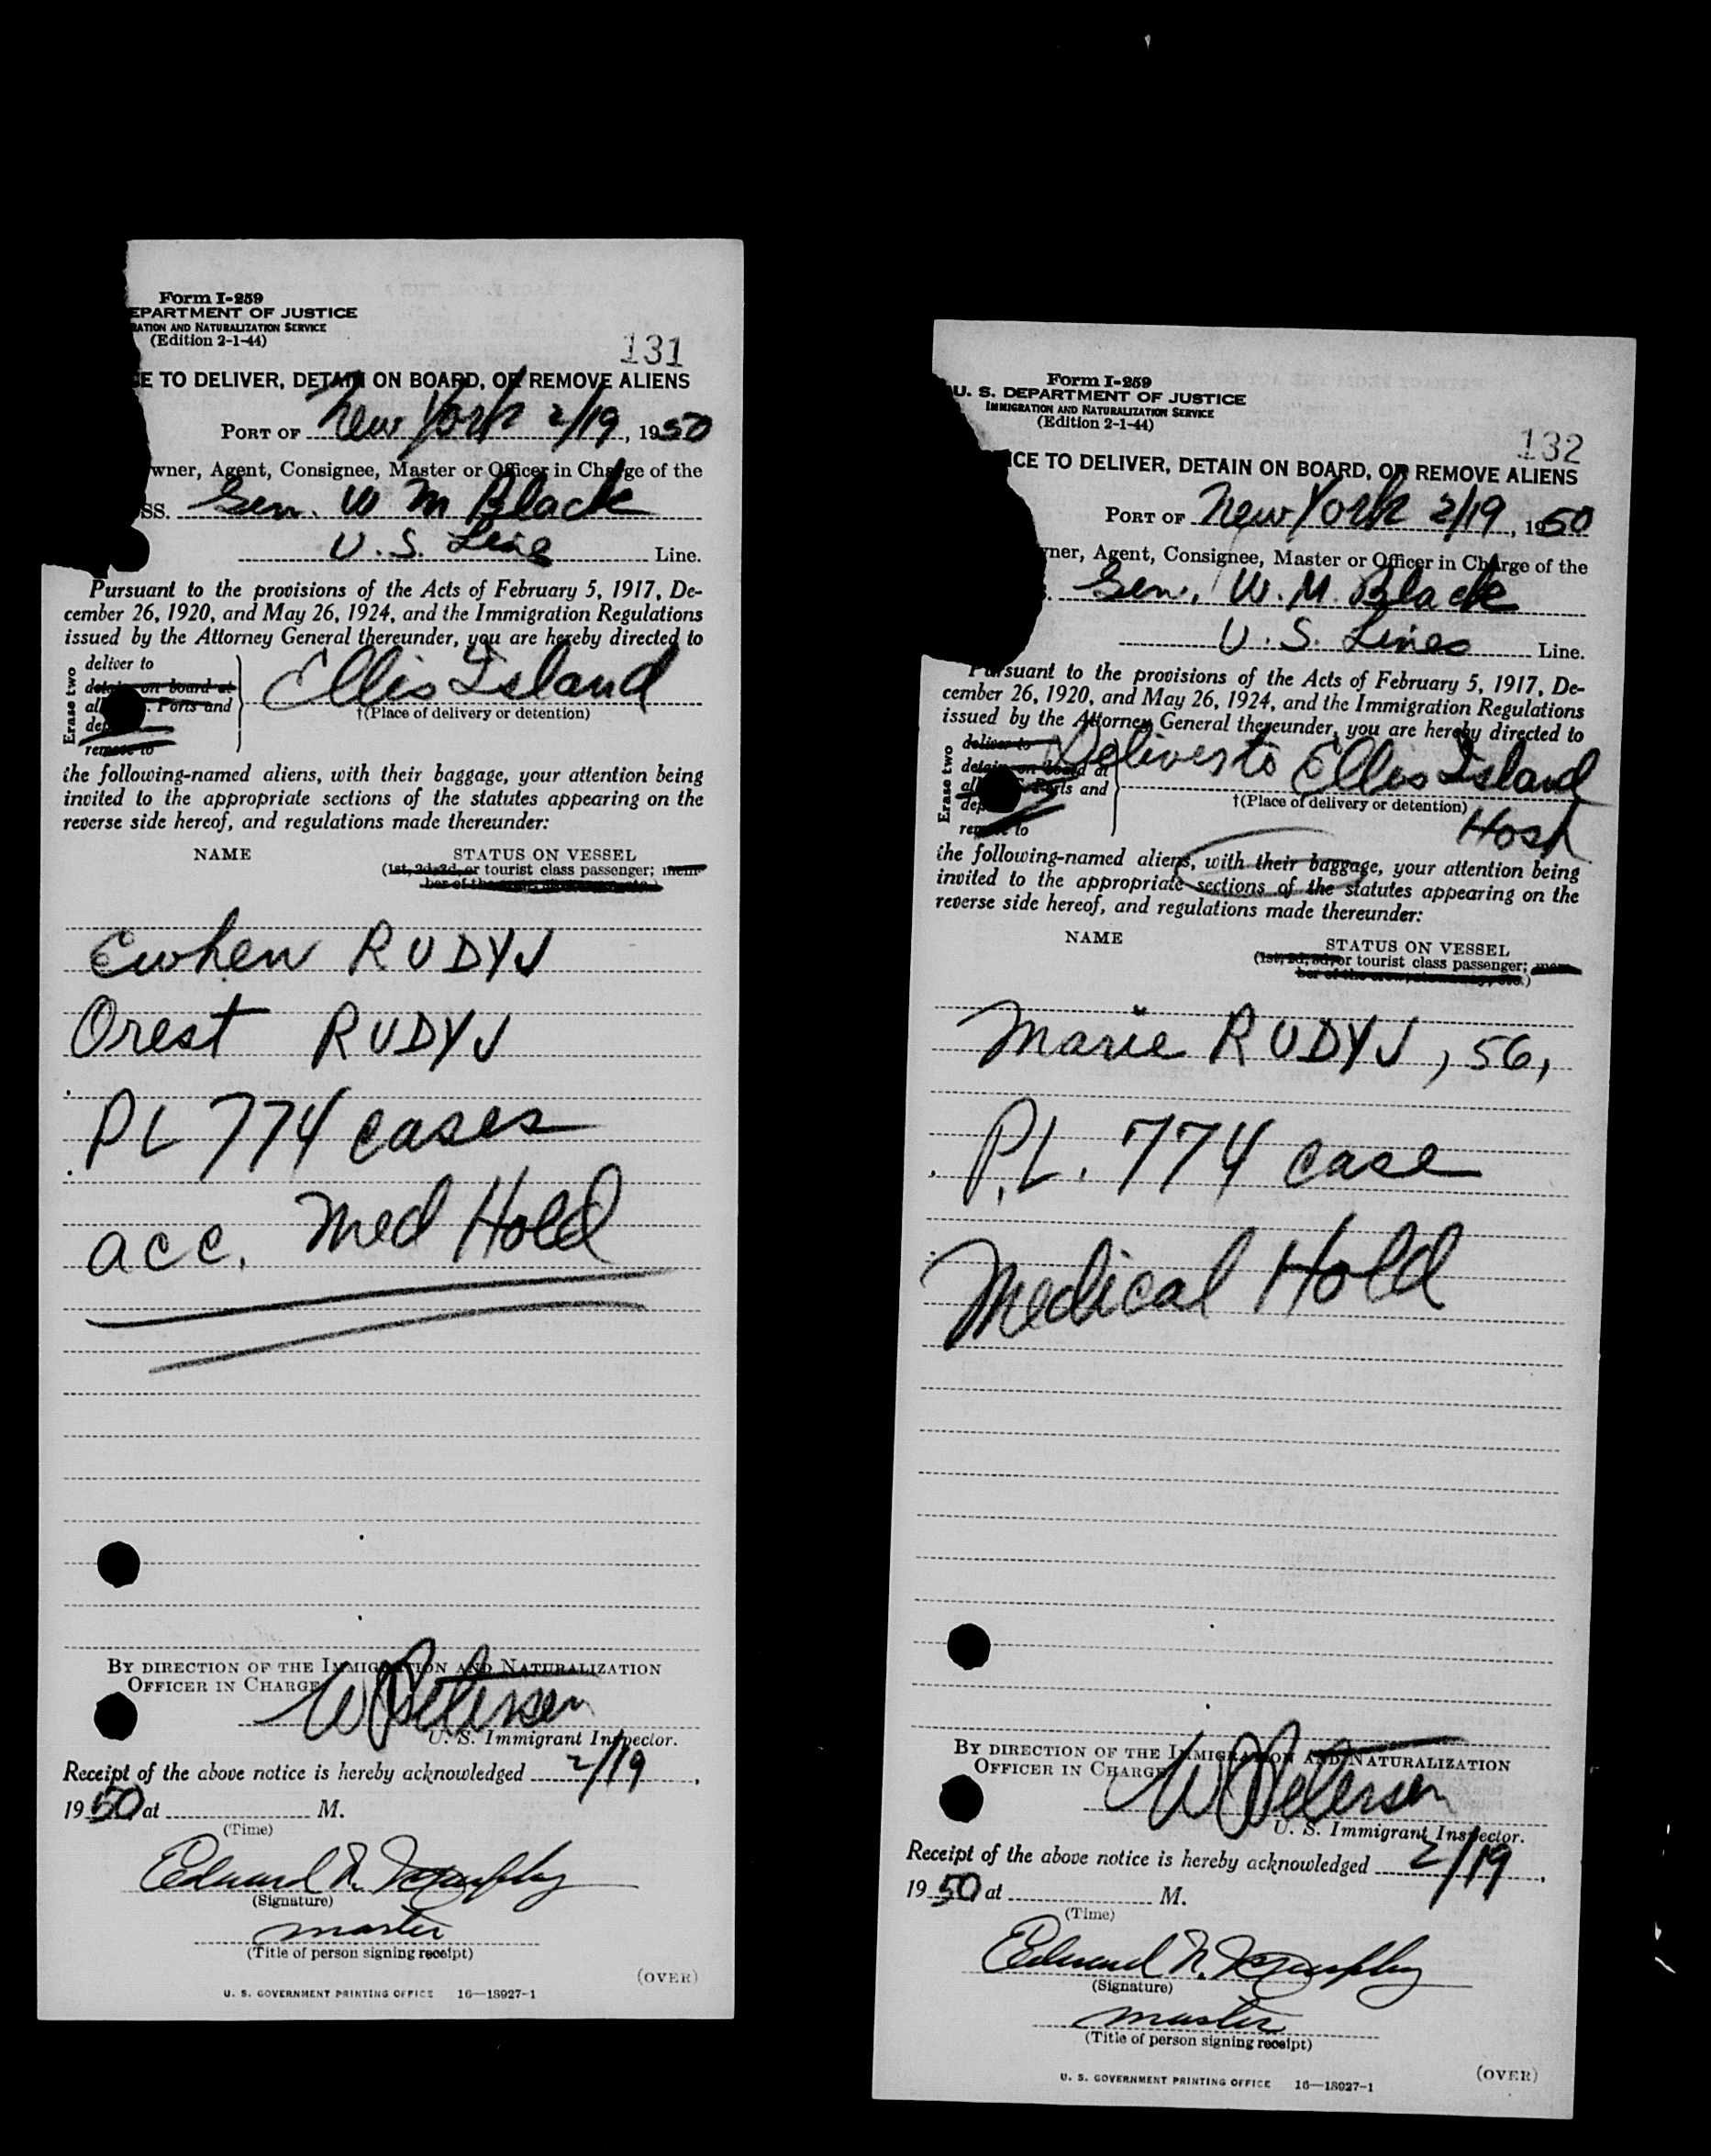 Form I-259
EPARTMENT OF JUSTICE
RATION AND NATURALIZATION SERVICE
(Edition 2-1-44)
131
E TO DELIVER, DETAIN ON BOARD, OR REMOVE ALIENS
PORT OF New York 2/19, 1950
wner, Agent, Consignee, Master or Officer in Charge of the
SS. Gen. W M Black
U.S. Line Line.
Pursuant to the provisions of the Acts of February 5, 1917, De-
cember 26, 1920, and May 26, 1924, and the Immigration Regulations
issued by the Attorney General thereunder, you are hereby directed to
Erase two
deliver to
detain on board at
all Ports and
de
remove to
Ellis Island
†(Place of delivery or detention)
the following-named aliens, with their baggage, your attention being
invited to the appropriate sections of the statutes appearing on the
reverse side hereof, and regulations made thereunder:
NAME STATUS ON VESSEL
(1st, 2d, 3d, or tourist class passenger; mem-
ber of the crew,
Ewhen RUDYJ
Orest RUDYJ
PL 774 cases
acc. Med Hold
BY DIRECTION OF THE IMMIGRATION AND NATURALIZATION
OFFICER IN CHARGE
W Petersen
U. S. Immigrant Inspector.
Receipt of the above notice is hereby acknowledged 2/19,
1950 at M.
(Time)
Edward N.
(Signature)
master
(Title of person signing receipt)
(OVER)
U. S. GOVERNMENT PRINTING OFFICE 16—18927-1
Form I-259
U. S. DEPARTMENT OF JUSTICE
IMMIGRATION AND NATURALIZATION SERVICE
(Edition 2-1-44)
132
ICE TO DELIVER, DETAIN ON BOARD, OR REMOVE ALIENS
PORT OF New York 2/19, 1950
ner, Agent, Consignee, Master or Officer in Charge of the
Gen. W. M. Black
U.S. Lines Line.
Pursuant to the provisions of the Acts of February 5, 1917, De-
cember 26, 1920, and May 26, 1924, and the Immigration Regulations
issued by the Attorney General thereunder, you are hereby directed to
Erase two
deliver to
detain on board at
all Ports and
dep
remove to
Deliver to Ellis Island
†(Place of delivery or detention)
Hosp
the following-named aliens, with their baggage, your attention being
invited to the appropriate sections of the statutes appearing on the
reverse side hereof, and regulations made thereunder:
NAME STATUS ON VESSEL
(1st, 2d, 3d, or tourist class passenger; mem-
ber of the crew,
Marie RUDYJ, 56,
P.L. 774 case
Medical Hold
BY DIRECTION OF THE IMMIGRATION AND NATURALIZATION
OFFICER IN CHARGE
W Petersen
U. S. Immigrant Inspector.
Receipt of the above notice is hereby acknowledged 2/19,
1950 at M.
(Time)
Edward N.
(Signature)
master
(Title of person signing receipt)
(OVER)
U. S. GOVERNMENT PRINTING OFFICE 16—18927-1